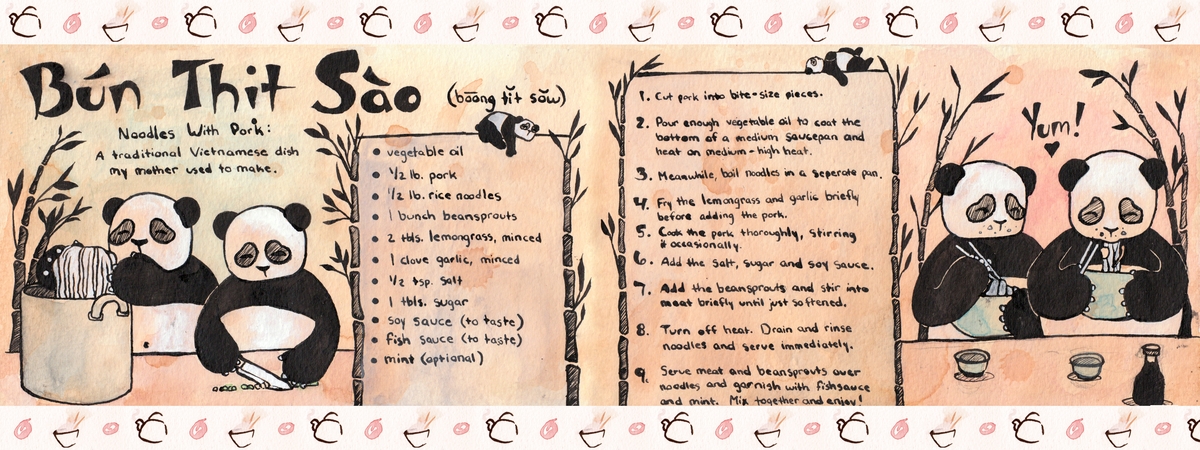 Bún Thit Sào (bōōng tĭt sŏw)
Noodles With Pork:
A traditional Vietnamese dish
my mother used to make.
• vegetable oil
• 1/2 lb. pork
• 1/2 lb. rice noodles
• 1 bunch beansprouts
• 2 tbls. lemongrass, minced
• 1 clove garlic, minced
• 1/2 tsp. salt
• 1 tbls. sugar
• soy sauce (to taste)
• fish sauce (to taste)
• mint (optional)
1. Cut pork into bite-size pieces.
2. Pour enough vegetable oil to coat the
bottom of a medium saucepan and
heat on medium-high heat.
3. Meanwhile, boil noodles in a seperate pan.
4. Fry the lemongrass and garlic briefly
before adding the pork.
5. Cook the pork thoroughly, stirring
occasionally.
6. Add the salt, sugar and soy sauce.
7. Add the beansprouts and stir into
meat briefly until just softened.
8. Turn off heat. Drain and rinse
noodles and serve immediately.
9. Serve meat and beansprouts over
noodles and garnish with fishsauce
and mint. Mix together and enjoy!
Yum!